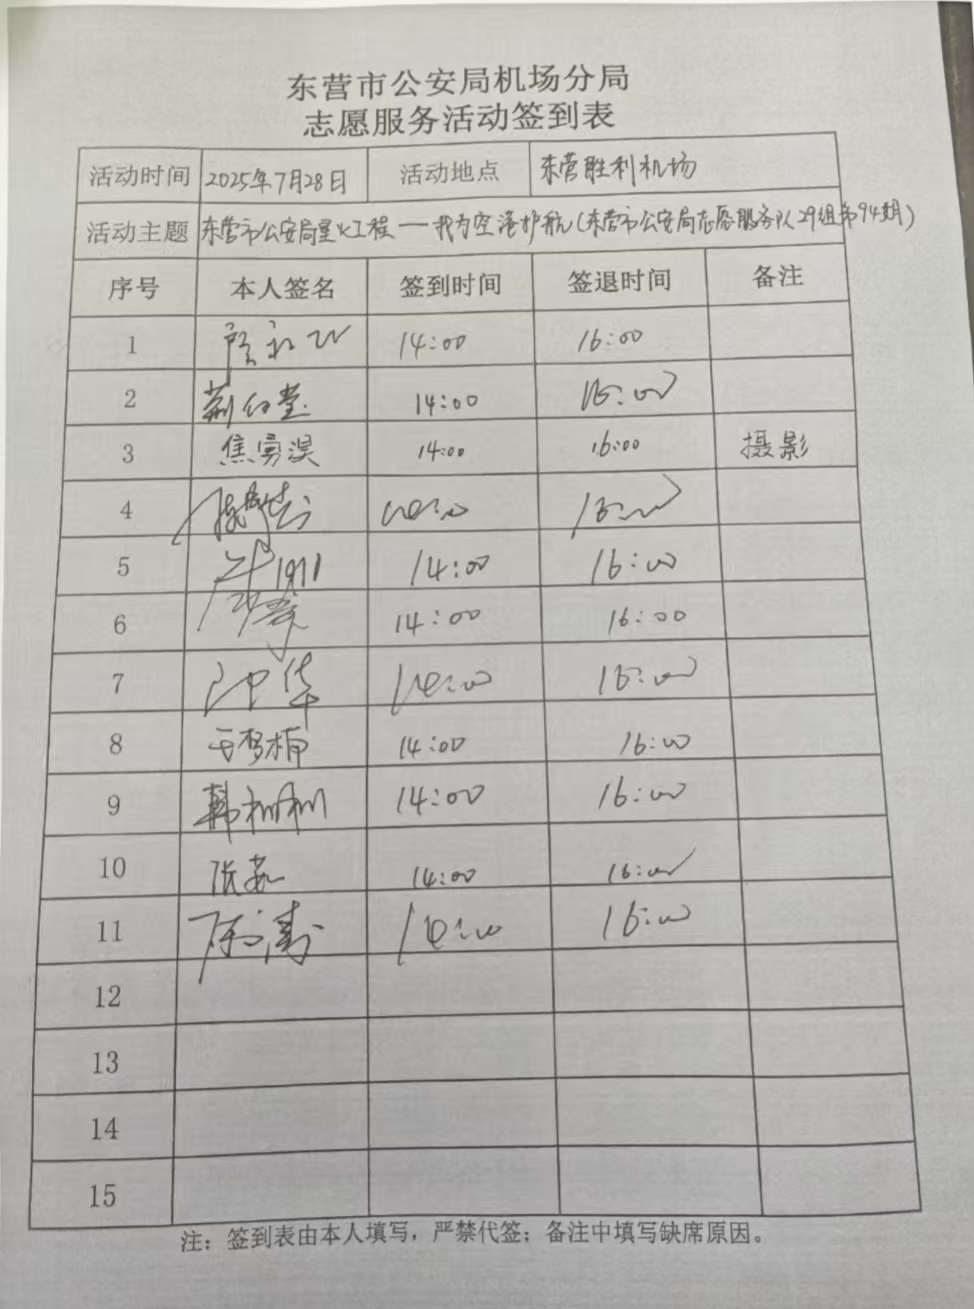 东营市公安局机场分局
志愿服务活动签到表
活动时间 2025年7月28日 活动地点 东营胜利机场
活动主题 东营市公安局星火工程——我为空港护航(东营市公安局志愿服务队29组第94期)
序号 本人签名 签到时间 签退时间 备注
1 14:00 16:00
2 14:00 16:00
3 焦 14:00 16:00 摄影
4 14:00 16:00
5 14:00 16:00
6 14:00 16:00
7 华 14:00 16:00
8 14:00 16:00
9 韩树树 14:00 16:00
10 张茹 14:00 16:00
11 涛 14:00 16:00
12
13
14
15
注：签到表由本人填写，严禁代签；备注中填写缺席原因。